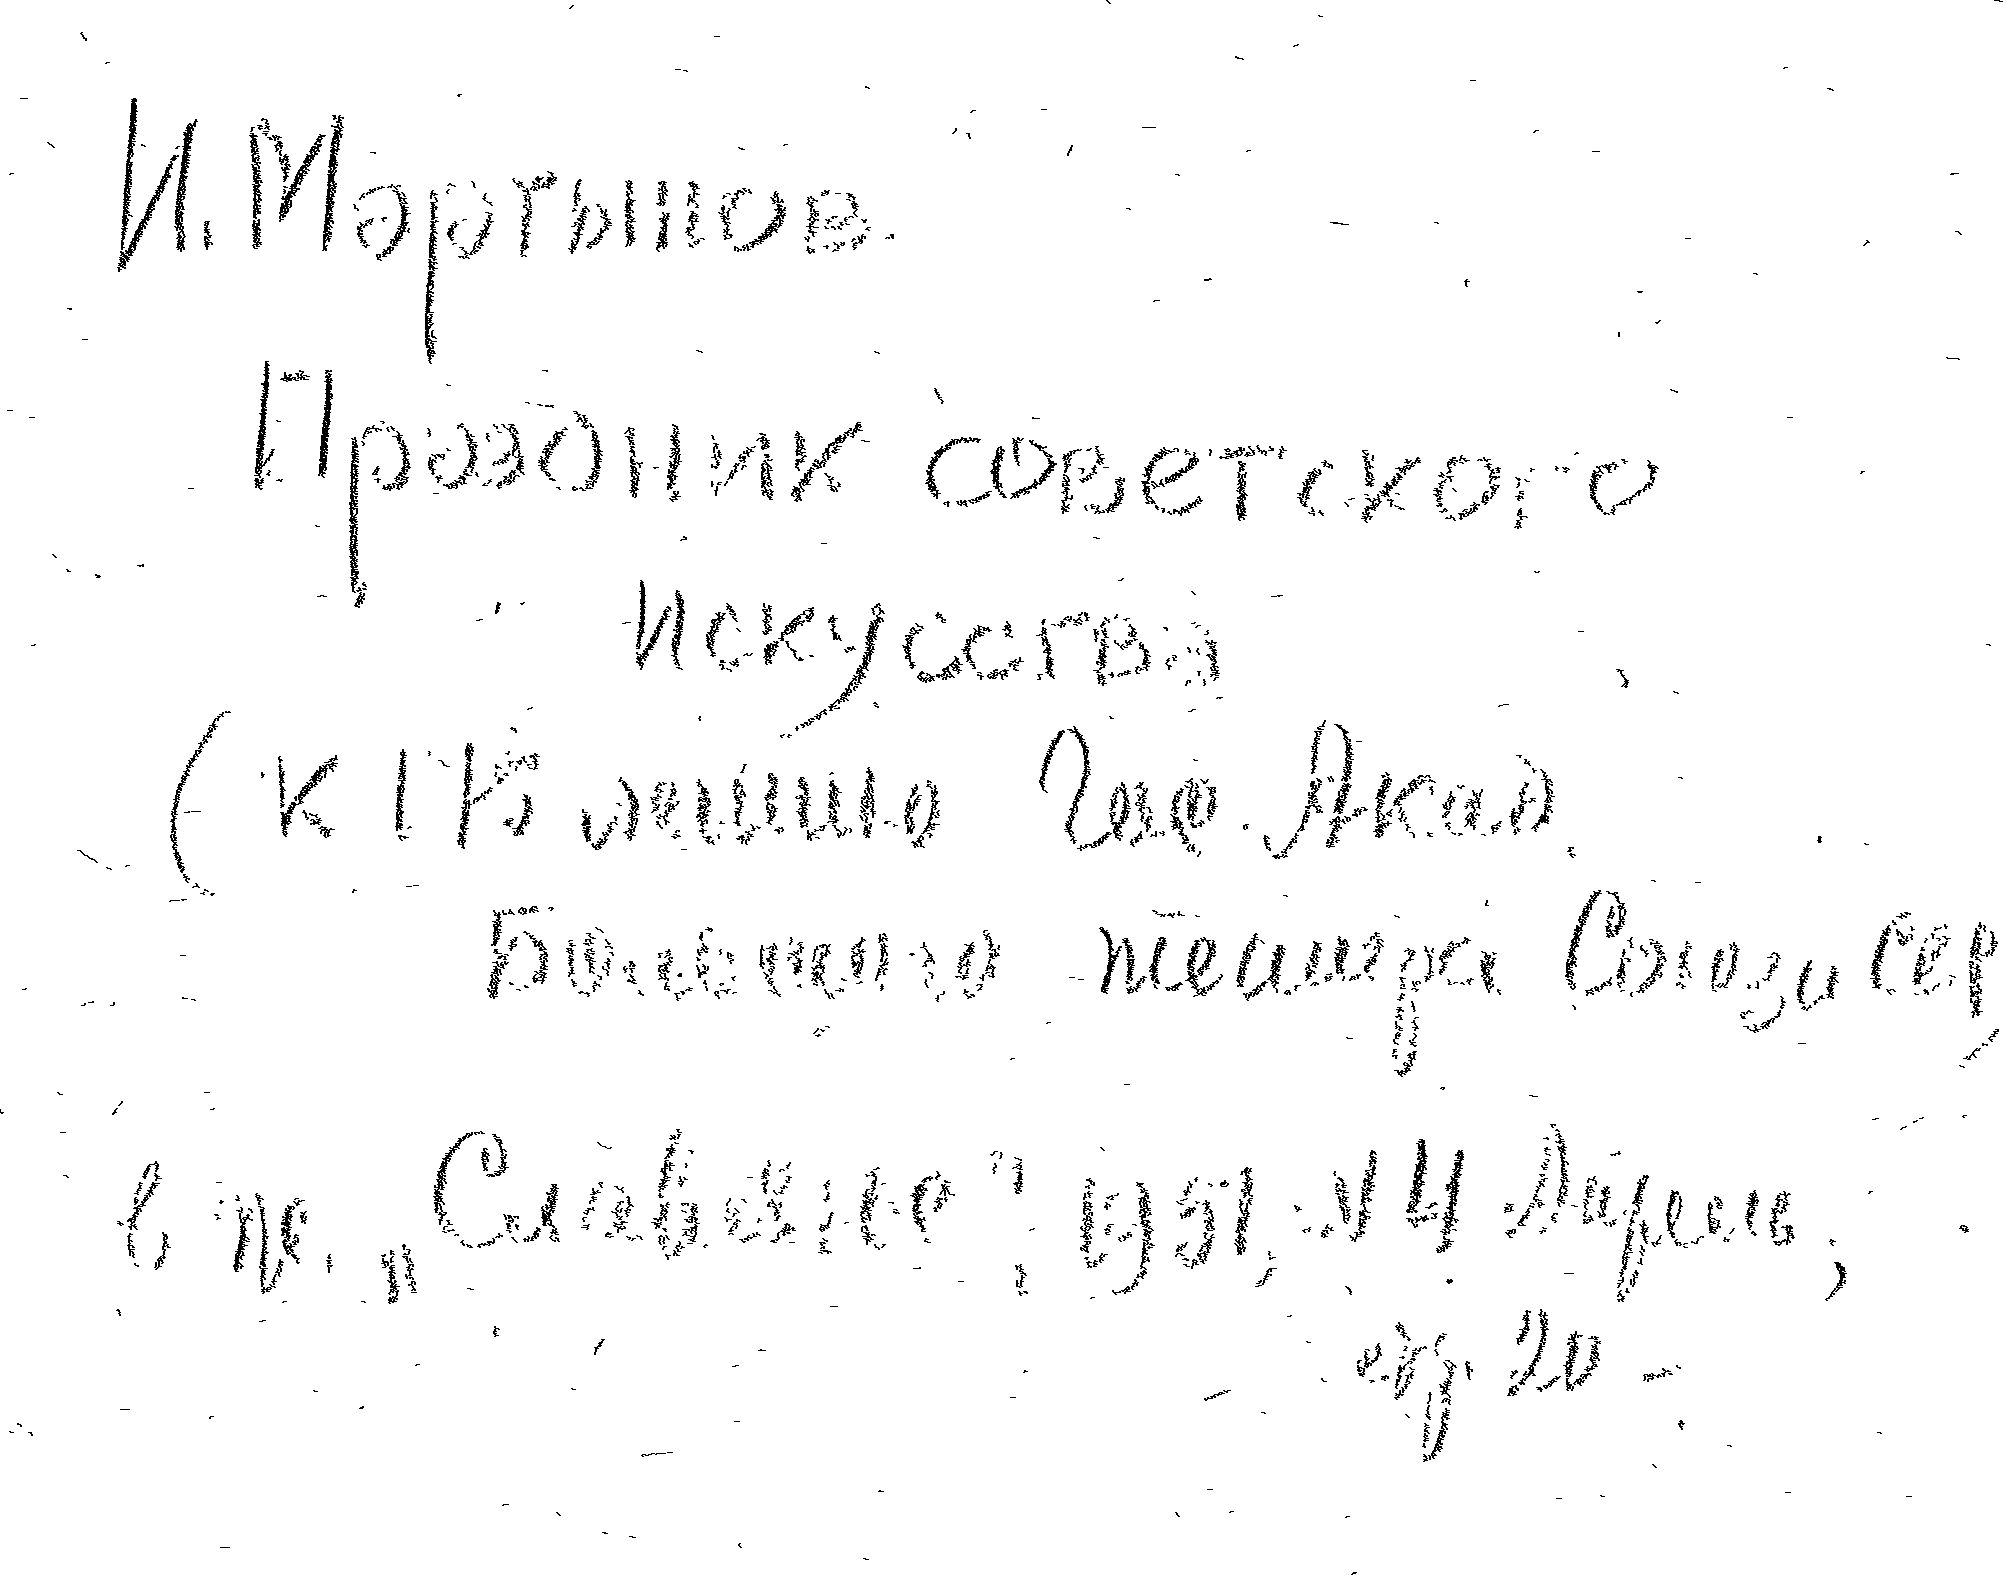 И. Мартынов.
Праздник советского
искусства
(к 175 летию Гос. Акад.
Большого театра Союза ССР)
в ж. „Славяне", 1951, № 4 Апрель,
стр. 20 -